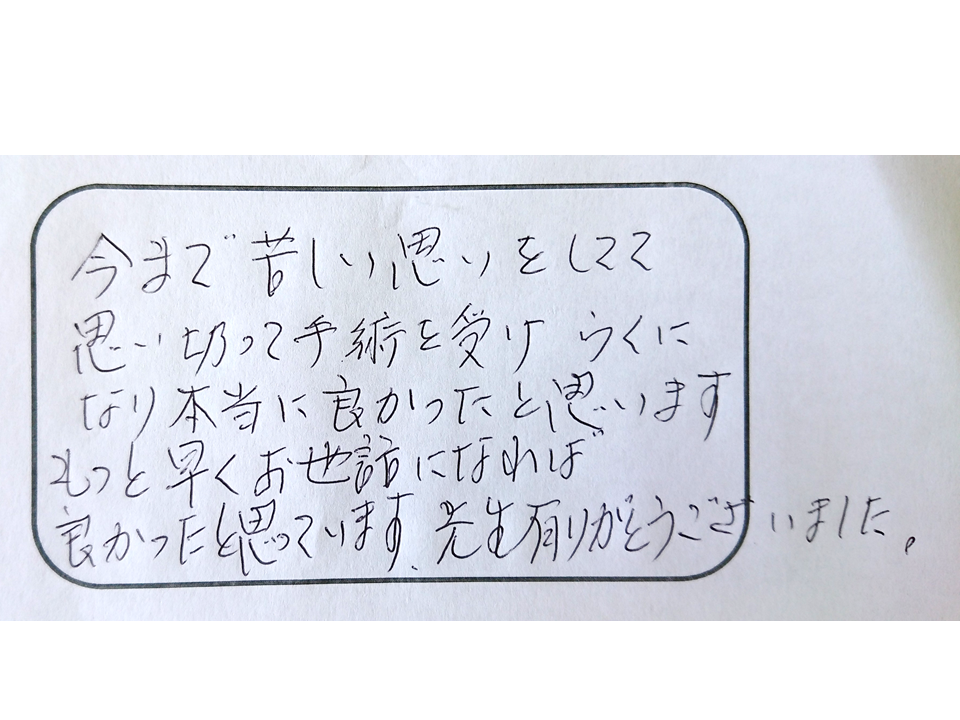 今まで苦しい思いをしてて
思い切って手術を受け らくに
なり本当に良かったと思います
もっと早くお世話になれば
良かったと思っています。先生有りがとうございました。